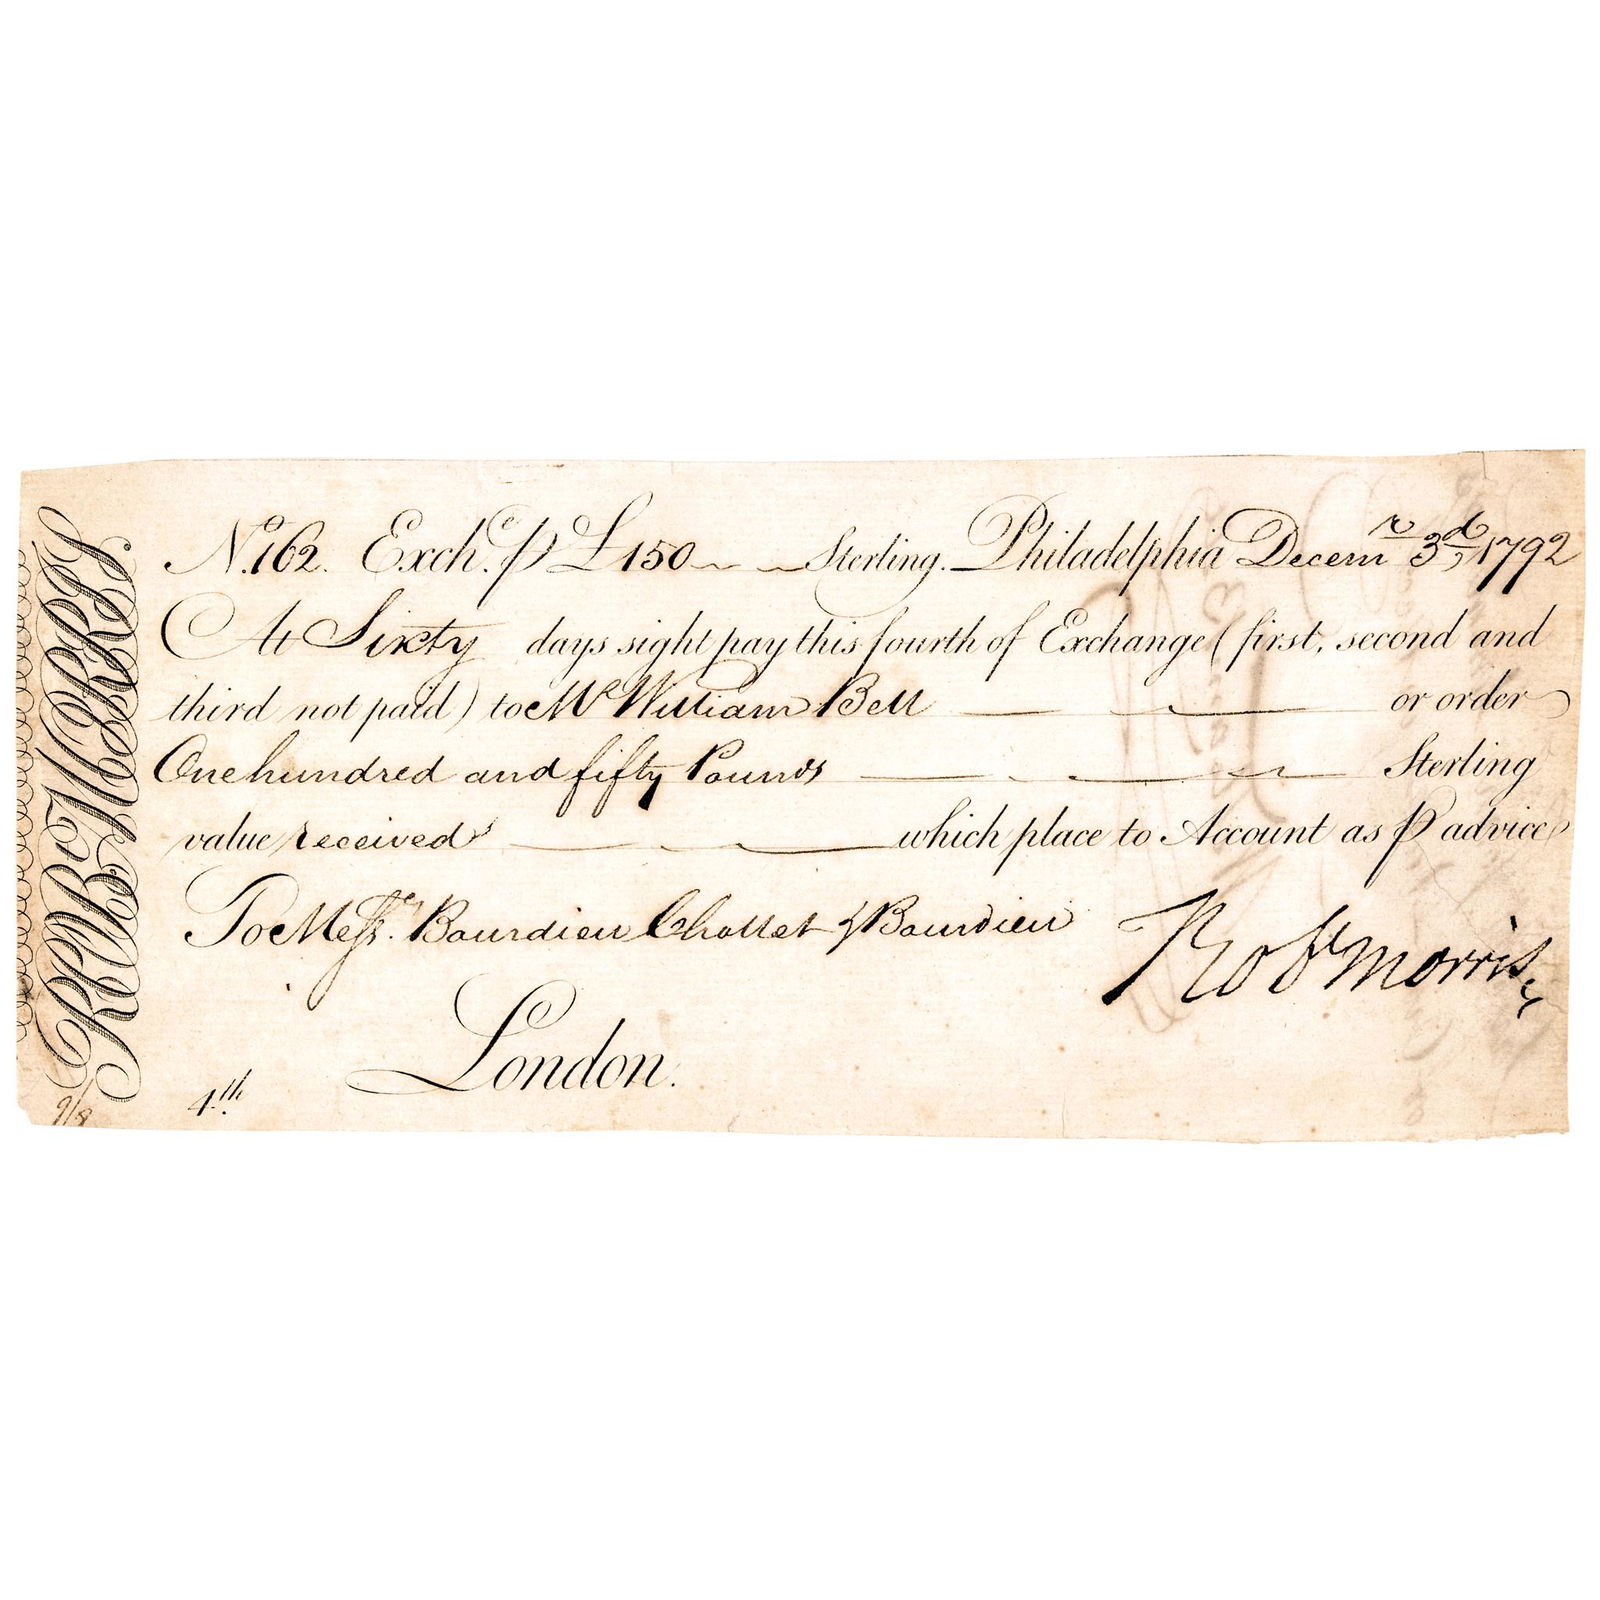 ROBᵀ MORRIS.
Nº 162. Exchᵉ. ⅌ £150 Sterling. Philadelphia Decemʳ 3ᵈ, 1792
At Sixty days sight pay this fourth of Exchange (first, second and
third not paid) to Mʳ William Bell or order
One hundred and fifty Pounds Sterling
value received which place to Account as ⅌ advice
To Messʳˢ. Bourdieu Chollet & Bourdieu
Robᵗ Morris
London.
4ᵗʰ.